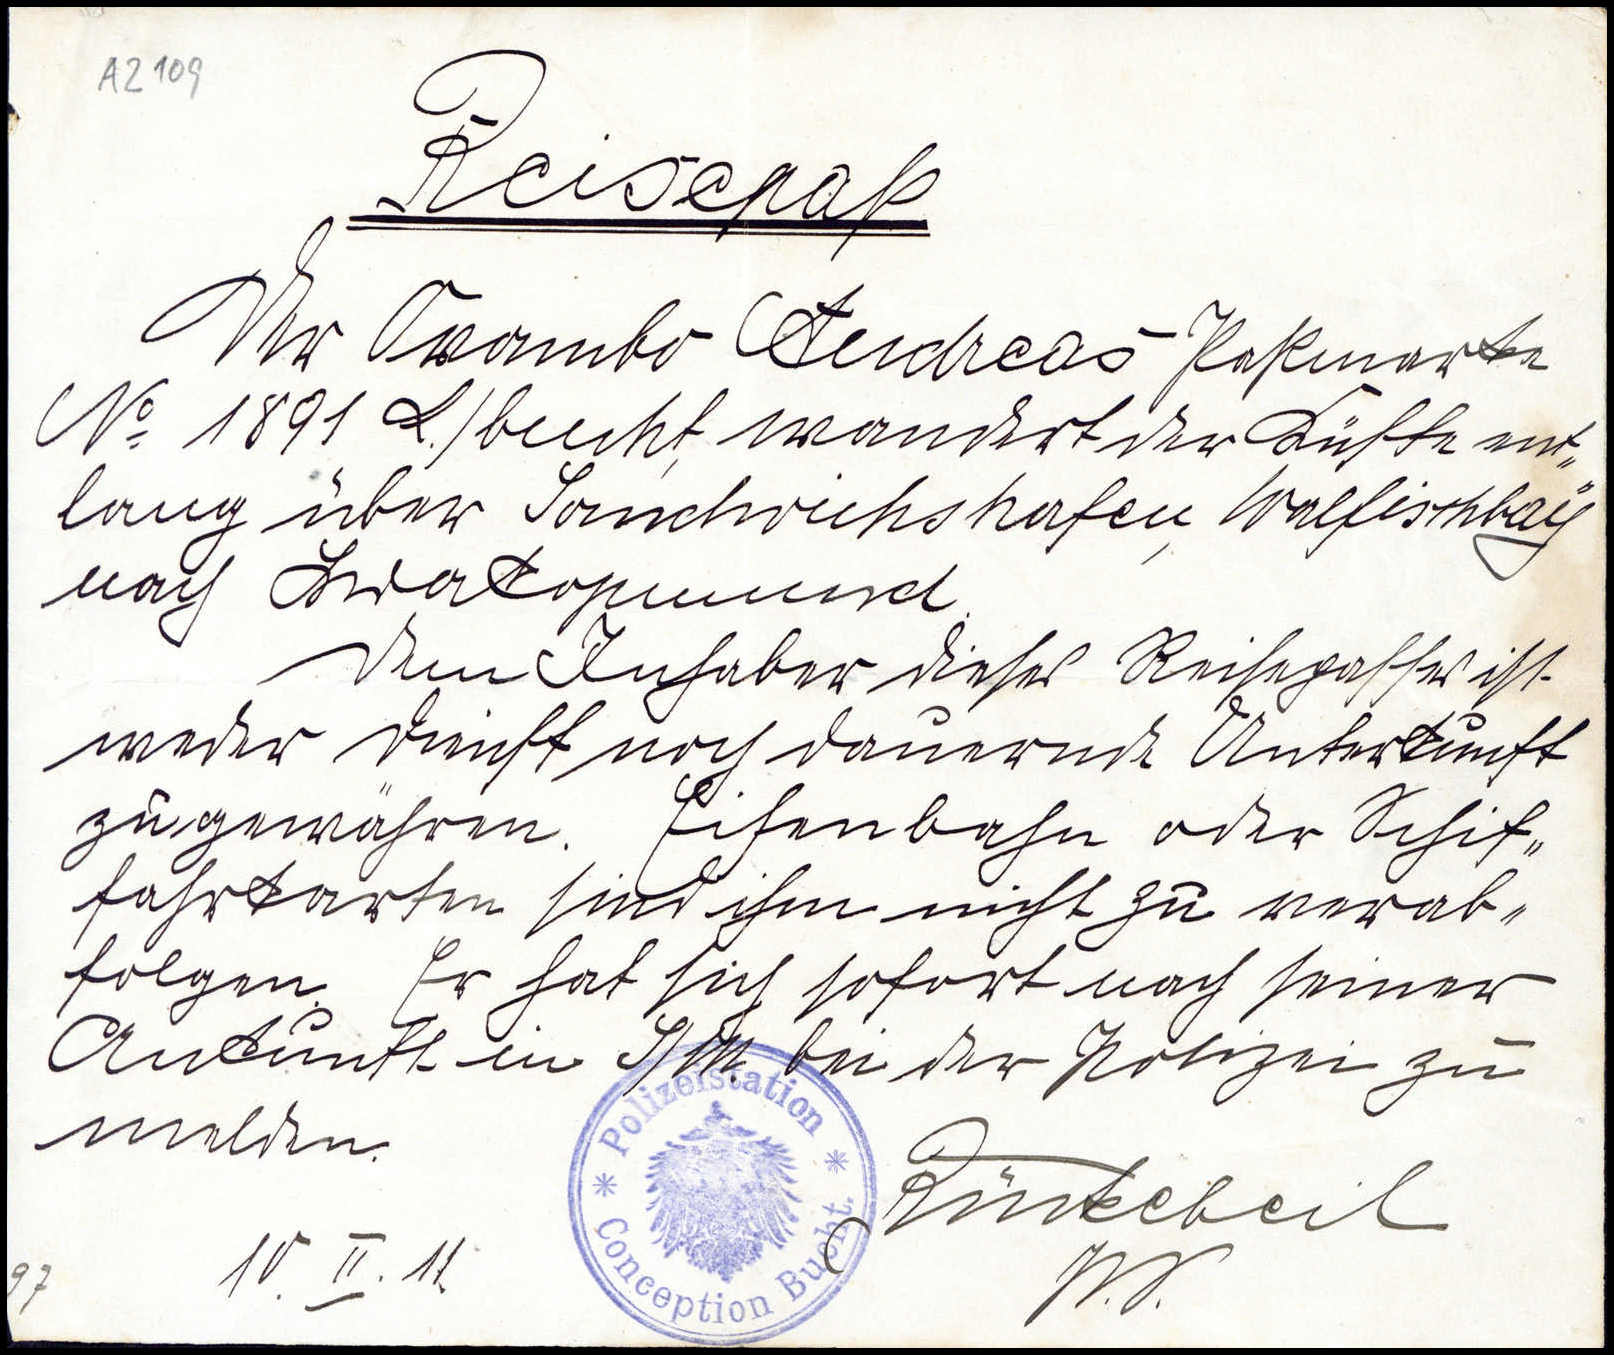 A2 109
Reisepaß
Der Ovambo Andreas Paßmarke
No 1891 L./bucht, wandert der Küste ent„
lang über Sandwichshafen, Walfischbay
nach Swakopmund.
Dem Inhaber dieses Reisepasses ist
weder Dienst noch dauernde Unterkunft
zu gewähren. Eisenbahn oder Schif„
fahrkarten sind ihm nicht zu verab„
folgen. Er hat sich sofort nach seiner
Ankunft in S/M. bei der Polizei zu
melden.
Polizeistation
* *
Conception Bucht.
P.S.
10. II. 11
97